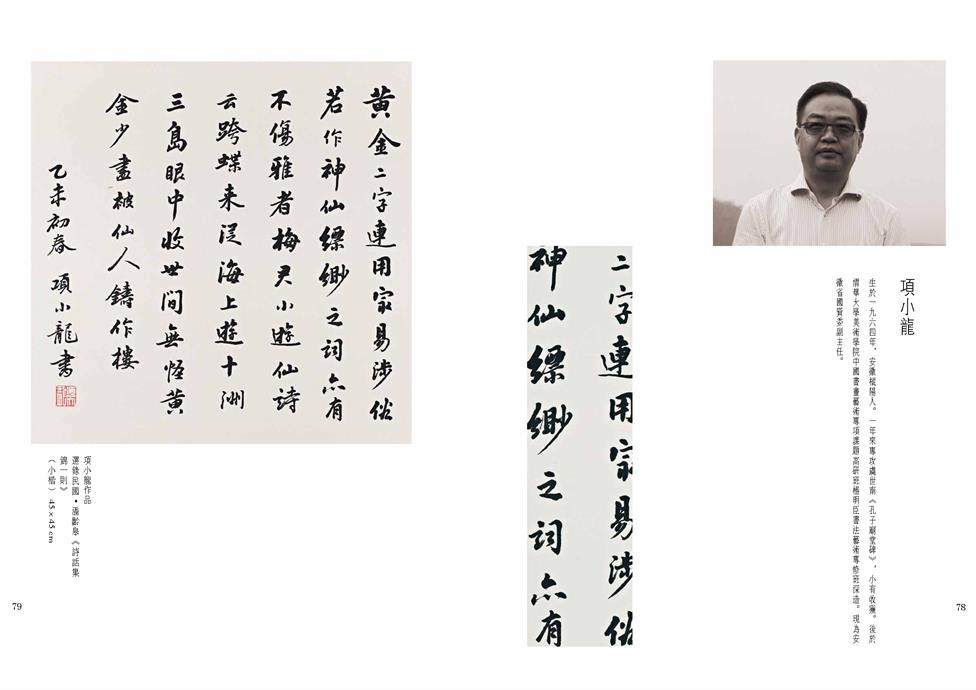 項小龍
生於一九六四年，安徽樅陽人。一年來專攻虞世南《孔子廟堂碑》，小有收獲。後於
清華大學美術學院中國書畫藝術專項課題高研班楊明臣書法藝術專修班深造。現為安
徽省國資委副主任。
78
二字連用㝡易涉俗
神仙縹緲之詞亦有
黄金二字連用㝡易涉俗
若作神仙縹緲之詞亦有
不傷雅者梅君小遊仙詩
云跨蝶来従海上遊十洲
三島眼中收世間無怪黄
金少盡被仙人鑄作樓
乙未初春 項小龍書
項小龍作品
選錄民國·潘齡皋《詩話集
錦一則》
（小楷） 45×45 cm
79